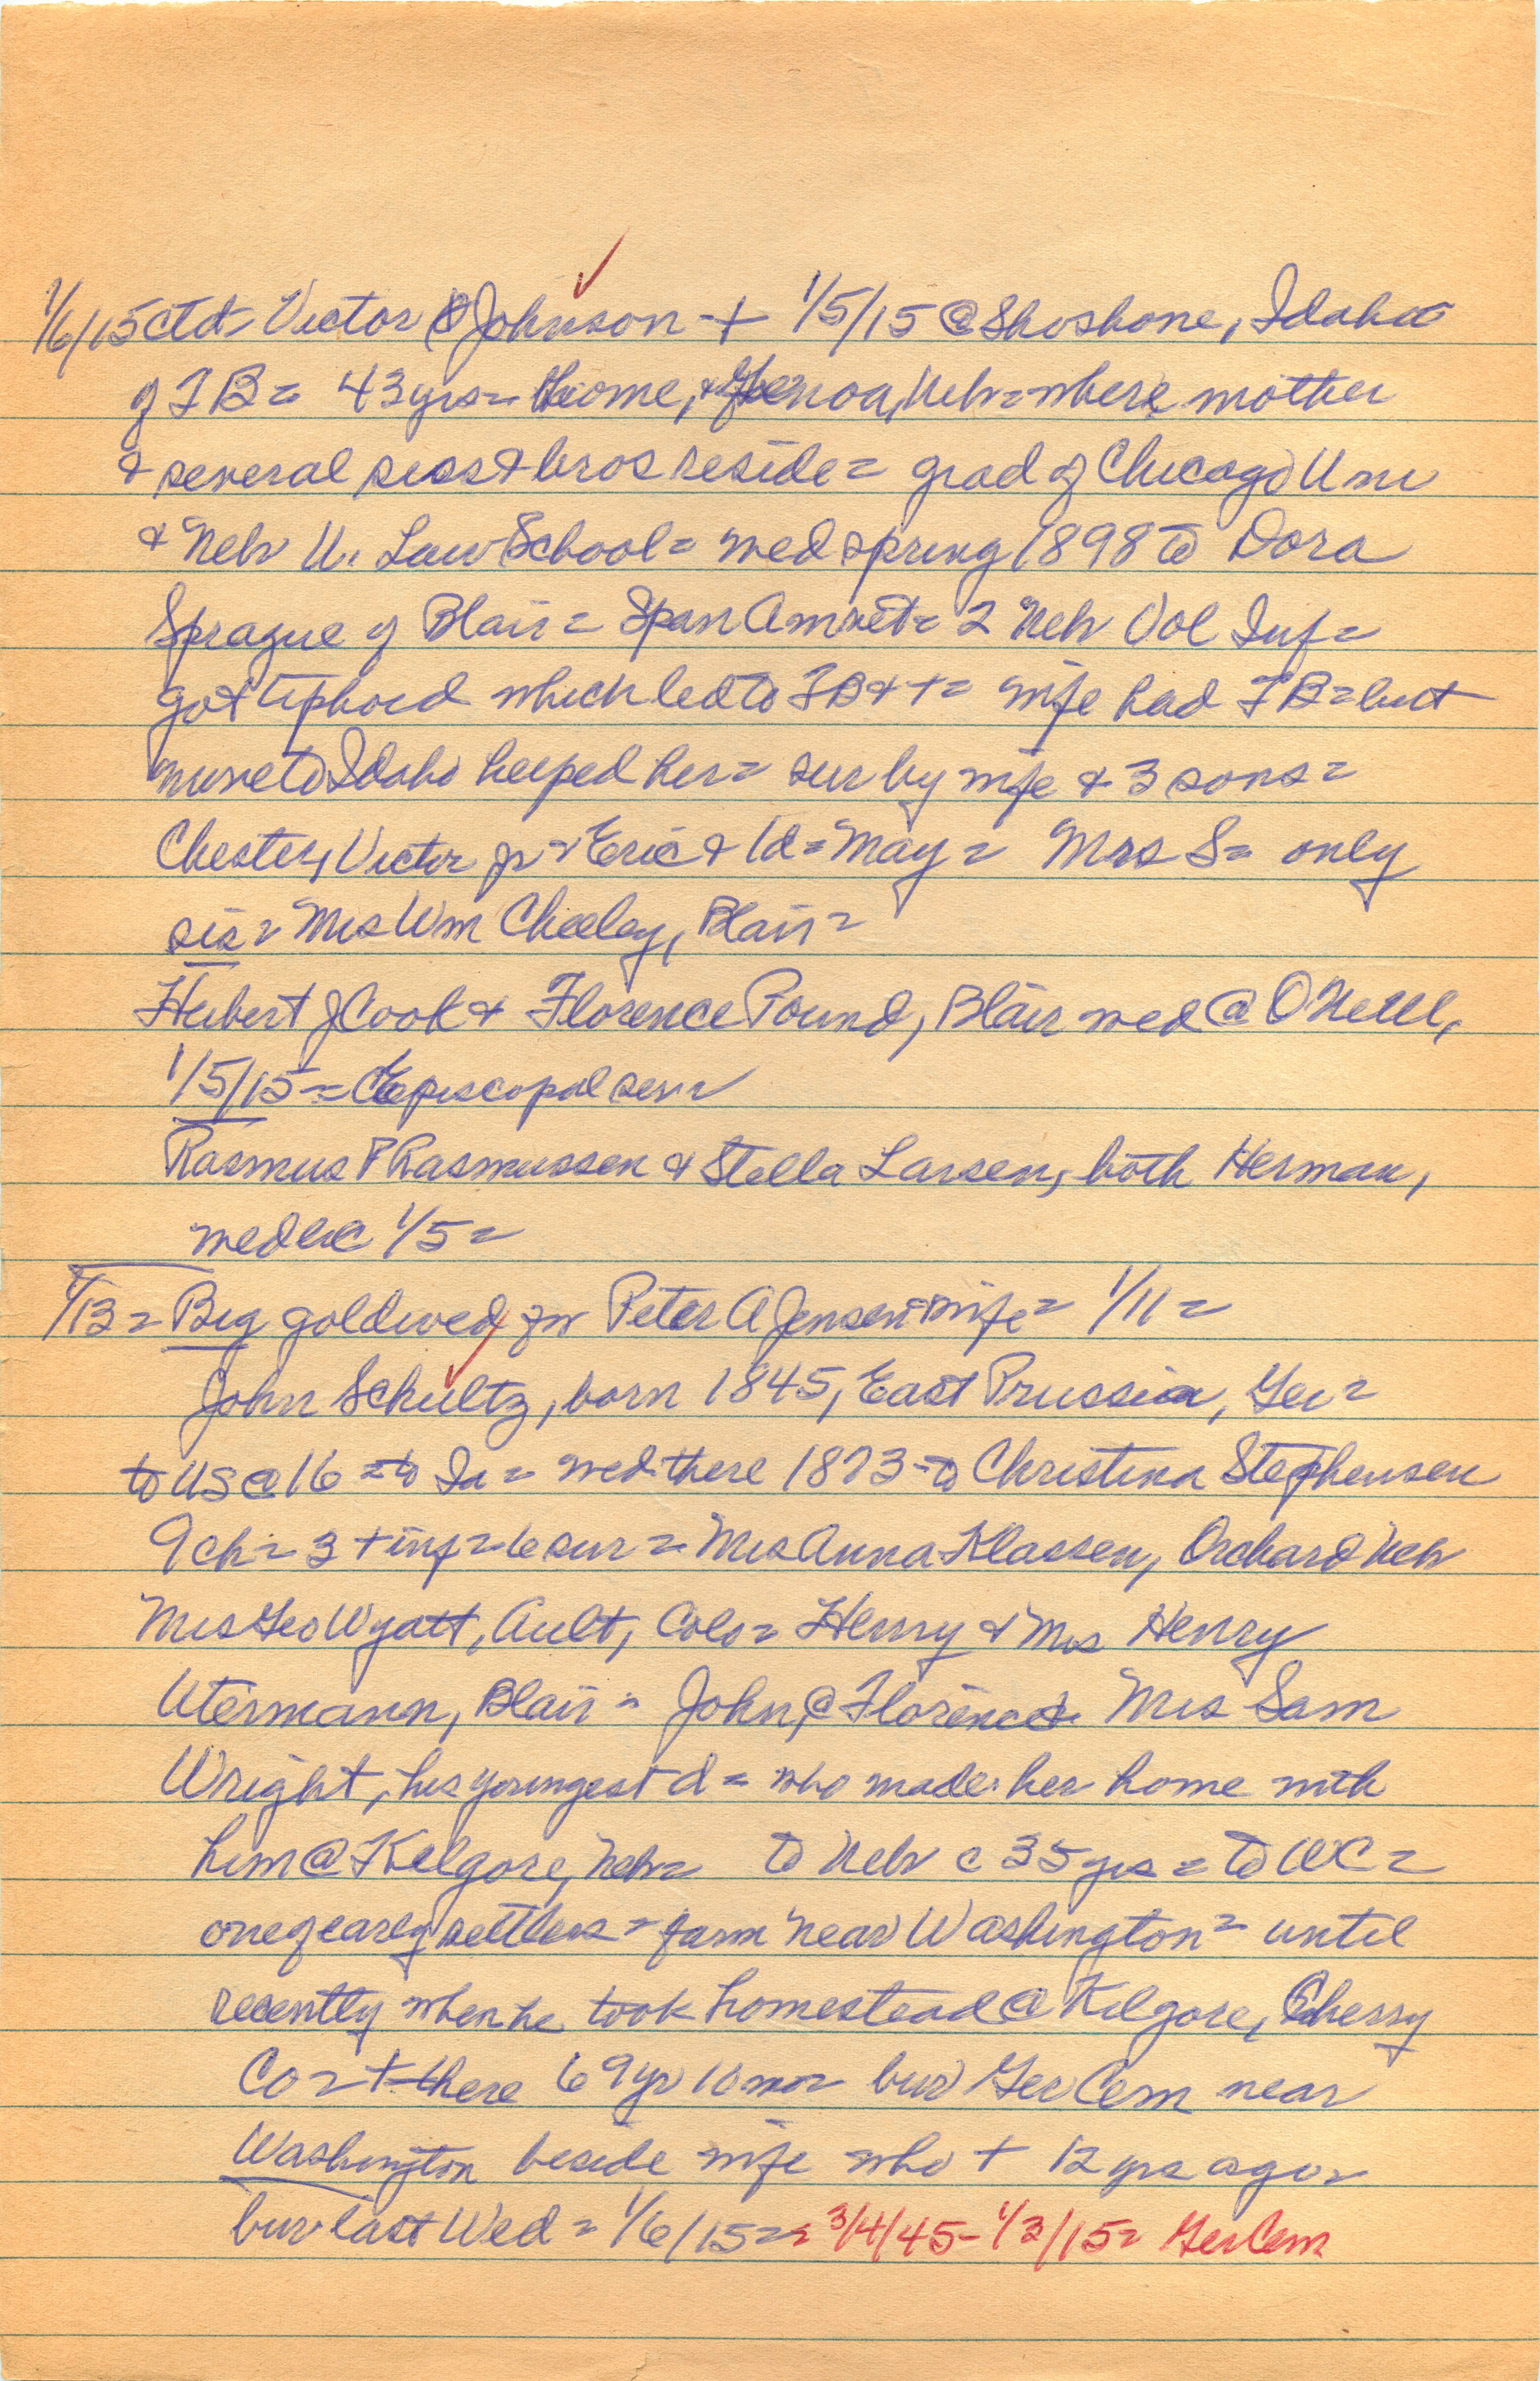 1/6/15 ctd= Victor O Johnson + 1/5/15 @ Shoshone, Idaho
of TB = 43 yrs = home, Genoa, Neb = where mother
& several siss & bros reside = grad of Chicago Uni
& Neb U. Law School = wed spring 1898 to Dora
Sprague of Blair = Span Am vet = 2 Neb Vol Inf =
got tiphoid which led to TB & + = wife had TB = but
move to Idaho helped her = sur by wife & 3 sons =
Chester, Victor jr & Eric & 1 d = May = Mrs S = only
sis = Mrs Wm Cheeley, Blair =
Hubert J Cook & Florence Pound, Blair wed @ ONeill,
1/5/15 = Episcopal serv
Rasmus P Rasmussen & Stella Larsen, both Herman,
wed 1/5 =
1/13 = Big gold wed for Peter A Jensen & wife = 1/11 =
John Schultz, born 1845, East Prussia, Ger =
to US @ 16 = to Ia = wed there 1873 to Christina Stephensen
9 ch = 3 + inf = 6 sur = Mrs Anna Klassen, Orchard Neb
Mrs Geo Wyatt, Ault, Colo = Henry & Mrs Henry
Utermann, Blair = John, @ Florence & Mrs Sam
Wright, his youngest d = who made her home with
him @ Kilgore, Neb = to Neb c 35 yrs = to WC =
one of early settlers = farm near Washington = until
recently when he took homestead @ Kilgore, Cherry
Co = + there 69 yr 10 mo = bur Ger Cem near
Washington beside wife who + 12 yrs ago =
bur last Wed = 1/6/15 = = 3/4/45 - 1/3/15 = Ger Cem